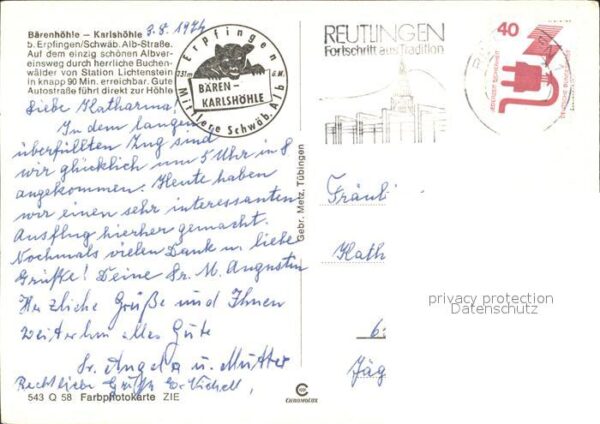 Bärenhöhle – Karlshöhle
b. Erpfingen/Schwäb. Alb-Straße.
Auf dem einzig schönen Albver-
einsweg durch herrliche Buchen-
wälder von Station Lichtenstein
in knapp 90 Min. erreichbar. Gute
Autostraße führt direkt zur Höhle
3.8.1974
Erpfingen
731m ü.M.
BÄREN-
KARLSHÖHLE
Mittlere Schwäb. Alb
REUTLINGEN
Fortschritt aus Tradition
40
DEUTSCHE BUNDESPOST
Liebe Katharina!
In dem langen
überfüllten Zug sind
wir glücklich um 5 Uhr in
angekommen. Heute haben
wir einen sehr interessanten
Ausflug hierher gemacht.
Nochmals vielen Dank u. liebe
Grüße! Deine Sr. M. Augustin
Herzliche Grüße und Ihnen
weiterhin alles Gute
Sr. Angela u. Mutter
Gebr. Metz, Tübingen
Fräuli
Kath
6
Jäg
privacy protection
Datenschutz
543 Q 58 Farbphotokarte ZIE
CHROMOLUX